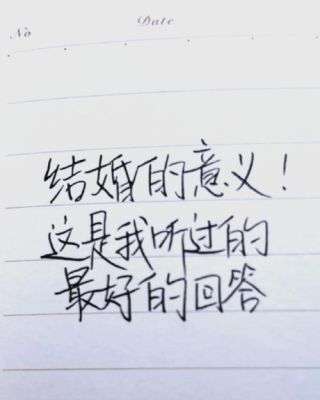 No
Date
结婚的意义！
这是我听过的
最好的回答